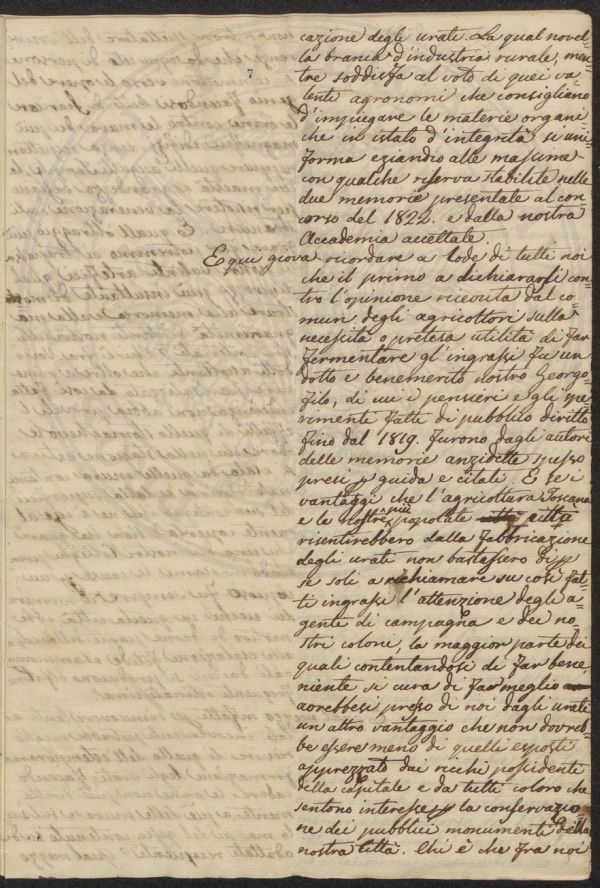 7
cazione degli urati. La qual novel=
la branca d'industria rurale, men=
tre soddisfa al voto di quei va=
lenti agronomi che consigliano
d'impiegare le materie organi=
che in istato d'integrità si uni=
forma eziandio alle massime
con qualche riserva stabilite nelle
due memorie presentate al con=
corso del 1822. e dalla nostra
Accademia accettate.
E qui giova ricordare a lode di tutti noi
che il primo a dichiararsi con=
tro l'opinione ricevuta dal co=
mun degli agricoltori sulla
necessità o pretesa utilità di far
fermentare gl'ingrassi fu un
dotto e benemerito nostro Georgo=
filo, di cui i pensieri e gli spe=
rimenti fatti di pubblico diritto
fino dal 1819. furono dagli autori
delle memorie anzidette spesso
presi p guida e citati. E se i
vantaggi che l'agricoltura Toscana
e le nostre più popolate città
risentirebbero dalla fabbricazione
degli urati non bastassero di p
se soli a richiamare su così fat=
ti ingrassi l'attenzione degli a=
genti di campagna e dei no=
stri coloni, la maggior parte dei
quali contentandosi di far bene,
niente si cura di far meglio
avrebbesi presso di noi dagli urati
un altro vantaggio che non dovreb=
be essere meno di quelli esposti
apprezzato dai ricchi possidenti
della capitale e da tutti coloro che
sentono interesse p la conservazio
ne dei pubblici monumenti della
nostra Città. Chi è che fra noi